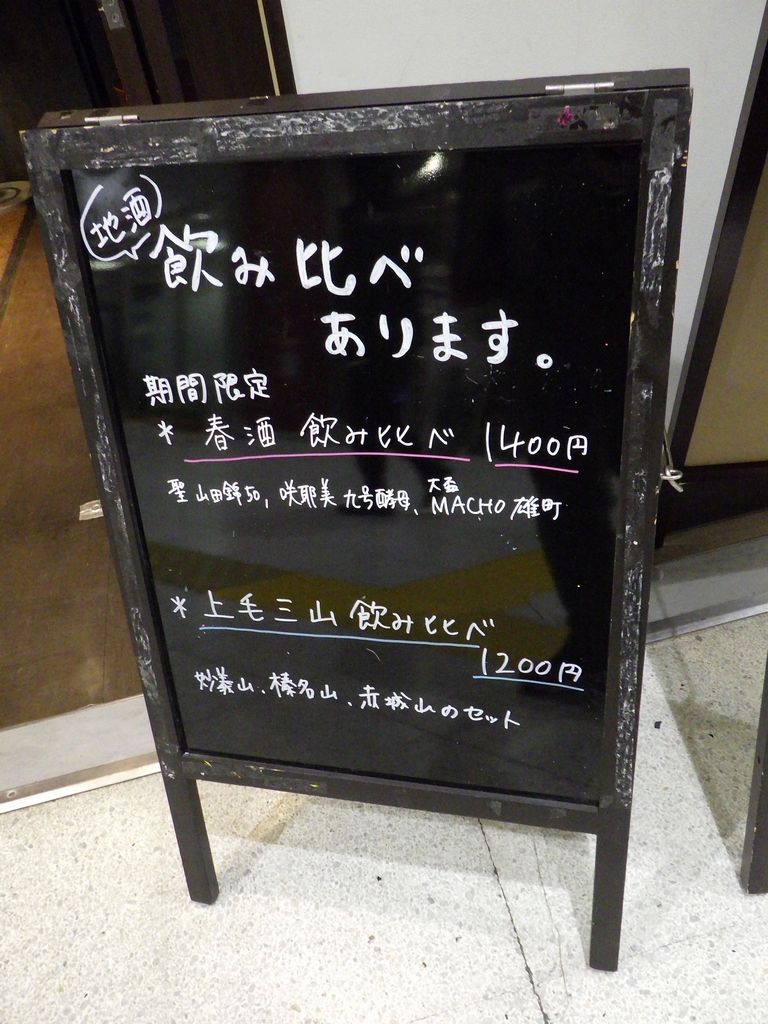 地酒
飲み比べ
あります。
期間限定
* 春酒 飲み比べ 1400円
聖 山田錦50, 咲耶美 九号酵母、大盃 MACHO 雄町
* 上毛三山 飲み比べ
1200円
妙義山、榛名山、赤城山のセット